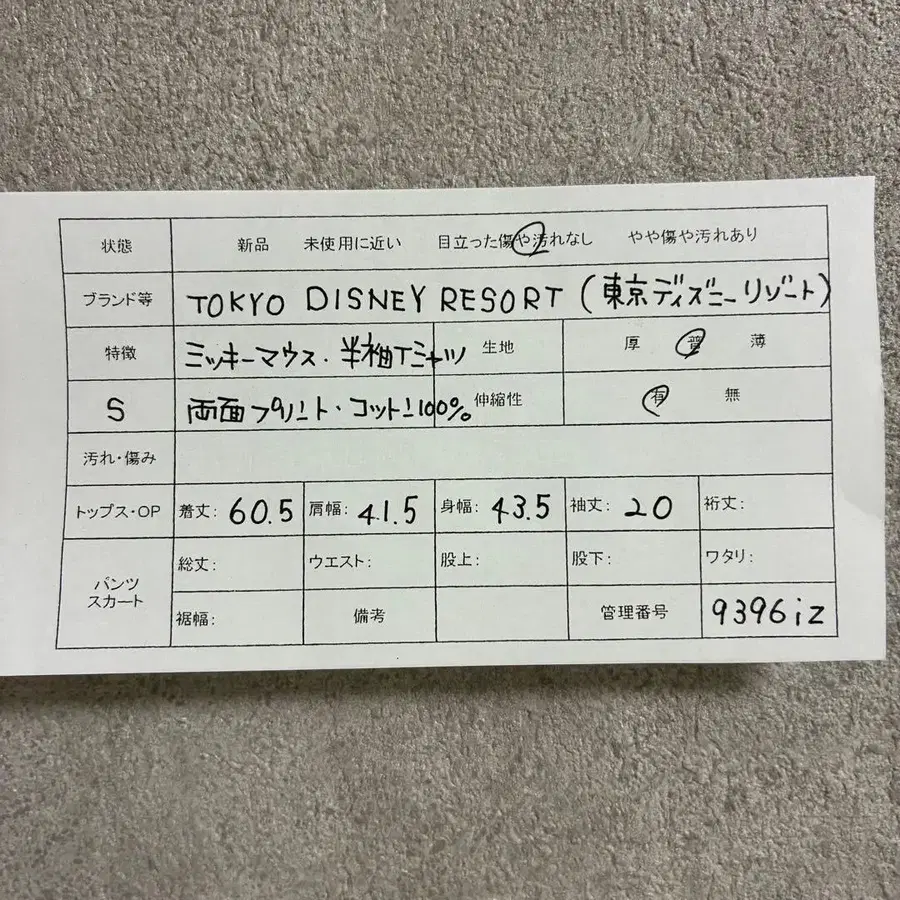 状態 新品 未使用に近い 目立った傷や汚れなし やや傷や汚れあり
ブランド等 TOKYO DISNEY RESORT (東京ディズニーリゾート)
特徴 ミッキーマウス・半袖Tシャツ 生地 厚 普 薄
S 両面プリント・コットン100% 伸縮性 有 無
汚れ・傷み
トップス・OP 着丈: 60.5 肩幅: 41.5 身幅: 43.5 袖丈: 20 裄丈:
パンツ スカート 総丈: ウエスト: 股上: 股下: ワタリ:
裾幅: 備考 管理番号 9396iz